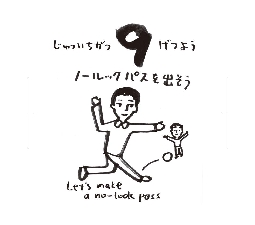 じゅういちがつ 9 げつよう
ノールックパスを出そう
Let's make
a no-look pass